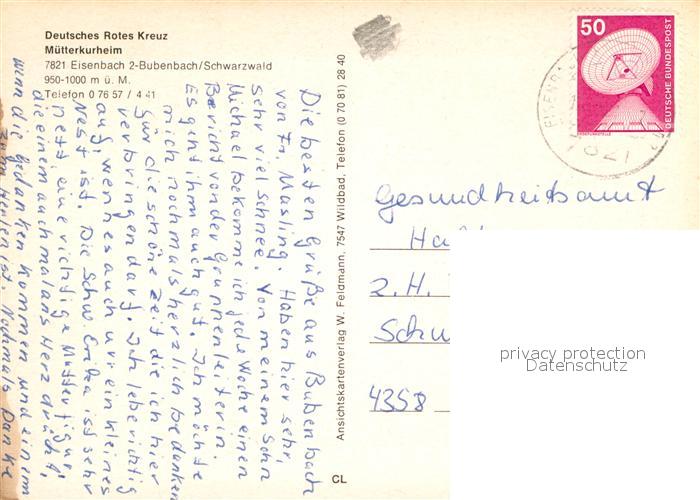 Deutsches Rotes Kreuz
Mütterkurheim
7821 Eisenbach 2-Bubenbach/Schwarzwald
950-1000 m ü. M.
Telefon 0 76 57 / 4 41
Die besten Grüße aus Bubenbach
von Fr. Masling. Haben hier sehr,
sehr viel Schnee. Von meinem Sohn
Michael bekomme ich jede Woche einen
Bericht von der Gruppenleiterin.
Es geht ihm auch gut. Ich möchte
mich nochmals herzlich bedanken
für die schöne Zeit die ich hier
verbringen darf. Ich lebe richtig
auf wenn es auch nur ein kleines
Nest ist. Die Schw. Erika ist sehr
nett eine richtige Mutterfigur,
die einem auch mal ans Herz drückt,
wenn die Gedanken kommen und einem
zum Heulen ist. Nochmals Danke
Ansichtskartenverlag W. Feldmann, 7547 Wildbad, Telefon (0 70 81) 28 40
CL
50
DEUTSCHE BUNDESPOST
ERDEFUNKSTELLE
7821
Gesundheitsamt
Ha
z. H.
Schw
4358
privacy protection
Datenschutz